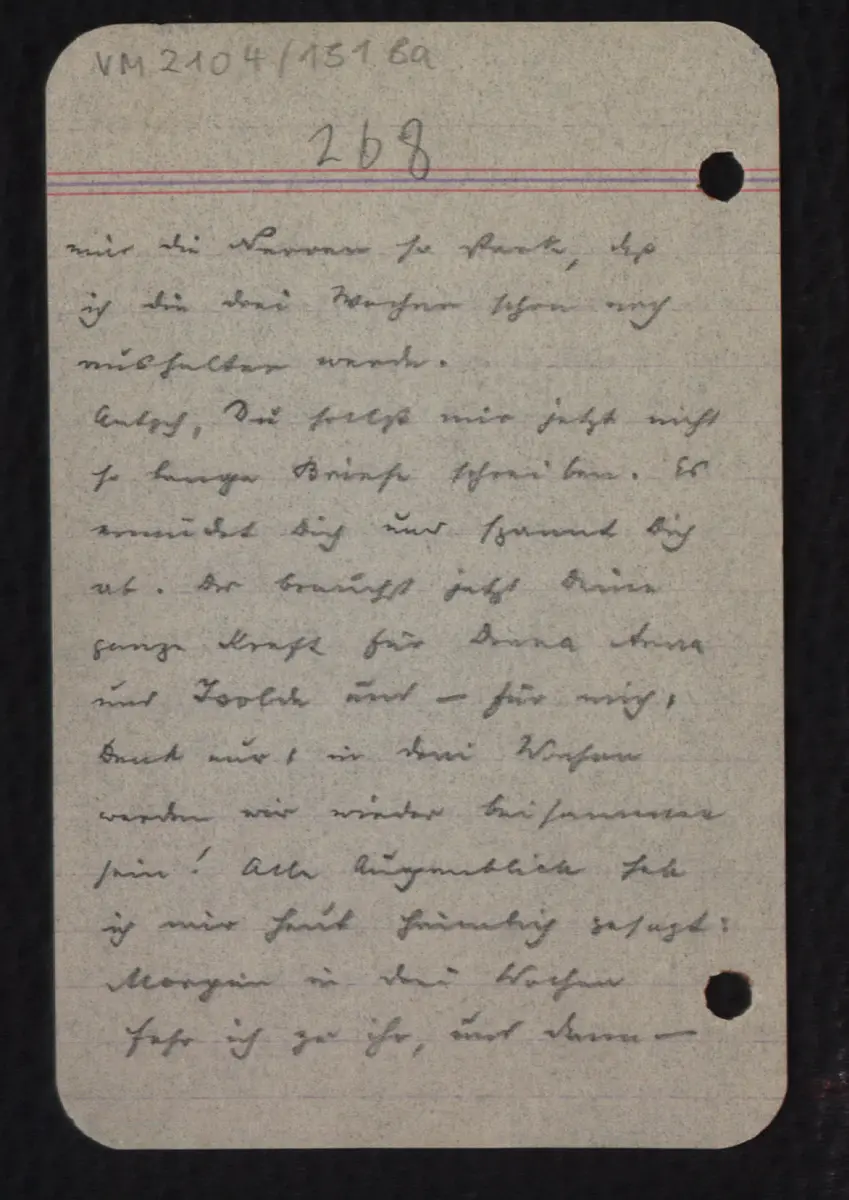 VM 2104/151 Ba
268
mir die Nerven so stark, daß
ich die drei Wochen schon noch
aushalten werde.
Du sollst mir jetzt nicht
so lange Briefe schreiben. Es
ermüdet Dich und spannt Dich
ab. Du brauchst jetzt Deine
ganze Kraft für Donna Anna
und Isolde und – für mich,
Denk nur, in drei Wochen
werden wir wieder beisammen
sein! Alle Augenblick hab
ich mir heut heimlich gesagt:
Morgen in drei Wochen
fahr ich zu ihr, und dann –